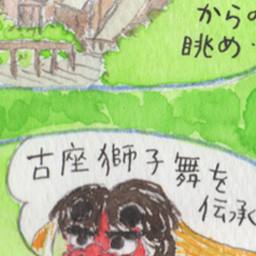 からの
眺め…
古座獅子舞を
伝承